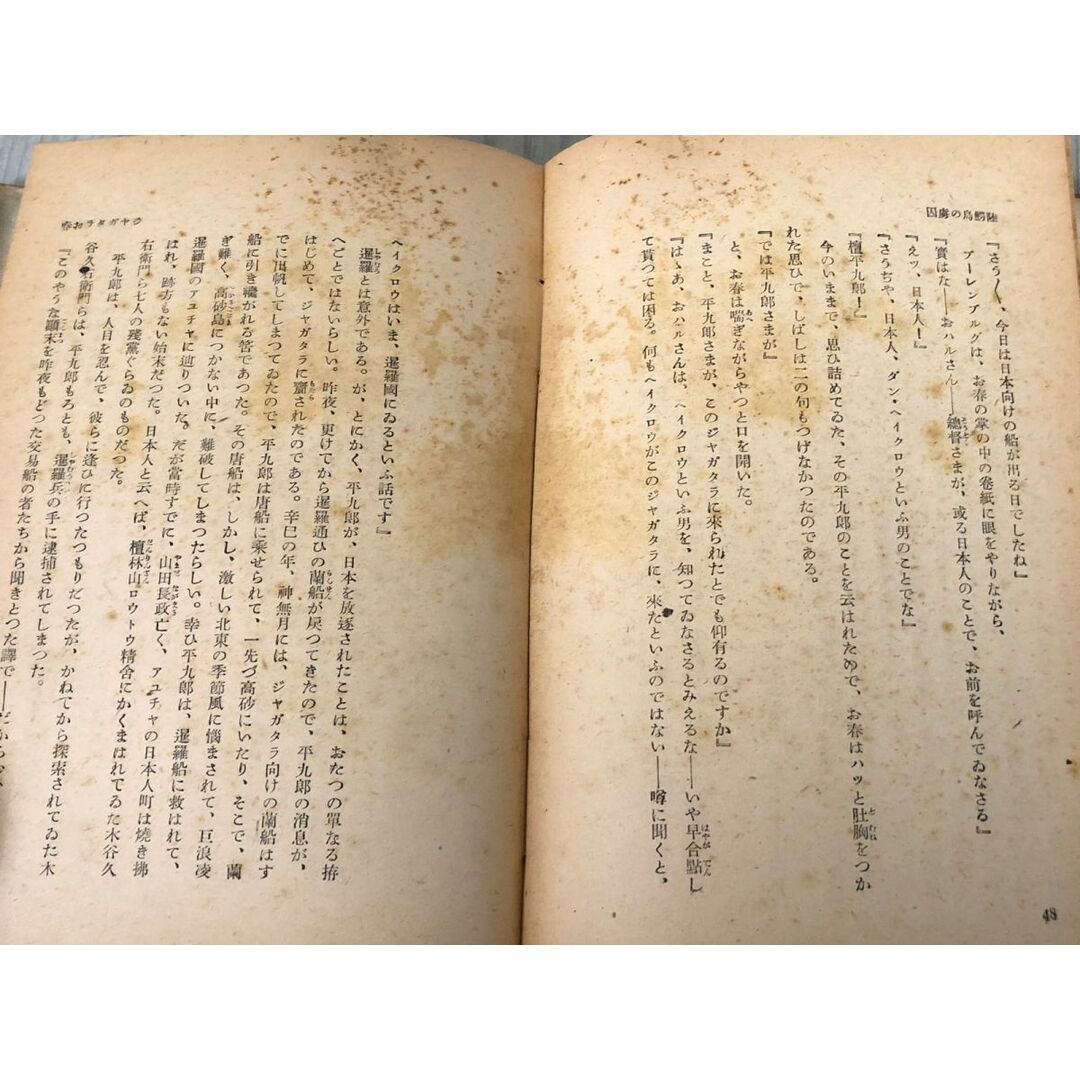 陸鰐鳥の虜囚
『さう〳〵、今日は日本向けの船が出る日でしたね』
アーレンアルグは、お春の掌の中の卷紙に眼をやりながら、
『實はな――おハルさん――總督さまが、或る日本人のことで、お前を呼んでゐなさる』
『えッ、日本人！』
『さうぢや、日本人、ダン・ヘイクロウといふ男のことでな』
『檀平九郎！』
今のいままで、思ひ詰めてゐた、その平九郎のことを云はれたので、お春はハッと肚胸をつか
れた思ひで、しばしは二の句もつげなかつたのである。
『では平九郎さまが』
と、お春は喘ぎながらやつと口を開いた。
『まこと、平九郎さまが、このジャガタラに來られたとでも仰有るのですか』
『はゝあ、おハルさんは、ヘイクロウといふ男を、知つてゐなさるとみえるな――いや早合點し
て貰つては困る。何もヘイクロウがこのジャガタラに、來たといふのではない――噂に聞くと、
48
ジャガタラお春
ヘイクロウはいま、暹羅國にゐるといふ話です』
暹羅とは意外である。が、とにかく、平九郎が、日本を放逐されたことは、おたつの單なる拵
へごとではないらしい。昨夜、更けてから暹羅通ひの蘭船が戻つてきたので、平九郎の消息が、
はじめて、ジャガタラに齎されたのである。辛巳の年、神無月には、ジャガタラ向けの蘭船はす
でに出帆してしまつてゐたので、平九郎は唐船に乘せられて、一先づ高砂にいたり、そこで、蘭
船に引き繼がれる筈であつた。その唐船は、しかし、激しい北東の季節風に惱まされて、巨浪凌
ぎ難く、高砂島につかない中に、難破してしまつたらしい。幸ひ平九郎は、暹羅船に救はれて、
暹羅國のアユチャに辿りついた。だが當時すでに、山田長政亡く、アユチャの日本人町は燒き拂
はれ、跡方もない始末だつた。日本人と云へば、檀林山ロウトゥ精舍にかくまはれてゐた木谷久
右衛門ら七人の殘黨ぐらゐのものだつた。
平九郎は、人目を忍んで、彼らに逢ひに行つたつもりだつたが、かねてから探索されてゐた木
谷久右衛門らは、平九郎もろとも、暹羅兵の手に逮捕されてしまつた。
『このやうな顚末を昨夜もどつた交易船の者たちから聞きとつた譯で――だから